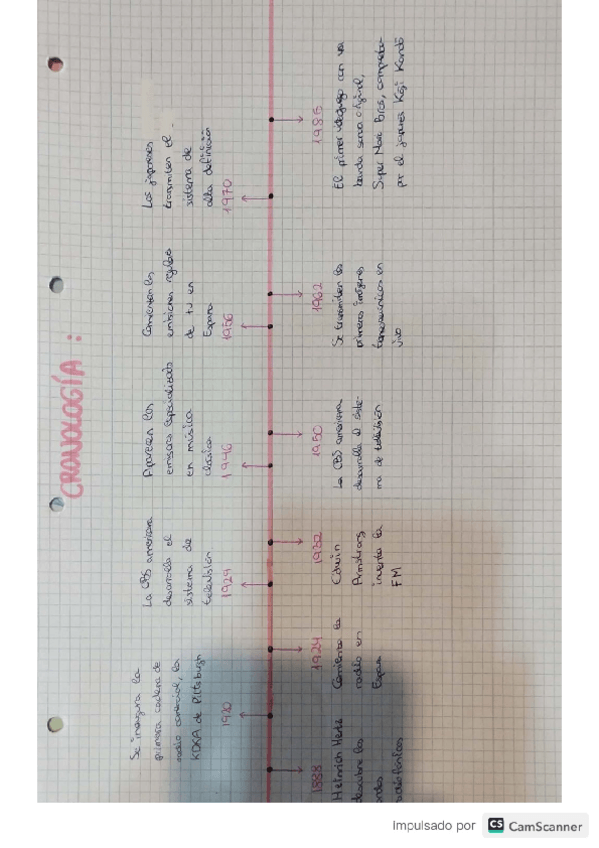 CRONOLOGÍA:
Se inaugura la
primera cadena de
radio comercial, la
KDKA de Pittsburgh
1920
La CBS americana
desarrolla el
sistema de
televisión
1929
Aparecen las
emisoras especializadas
en música
clásica
1946
Comienzan las
emisiones regulares
de tv en
España
1956
Los japoneses
transmiten el
sistema de
alta definición
1970
1888
Heinrich Hertz
descubre las
ondas
radiofónicas
1924
Comienza la
radio en
España
1932
Edwin
Armstrong
inventa la
FM
1950
La CBS americana
desarrolla el siste-
ma de televisión
1962
Se transmiten las
primeras imágenes
transoceánicas en
vivo
1985
El primer videojuego con una
banda sonora original,
Super Mario Bros, compuesta
por el japonés Koji Kondō
Impulsado por CS CamScanner